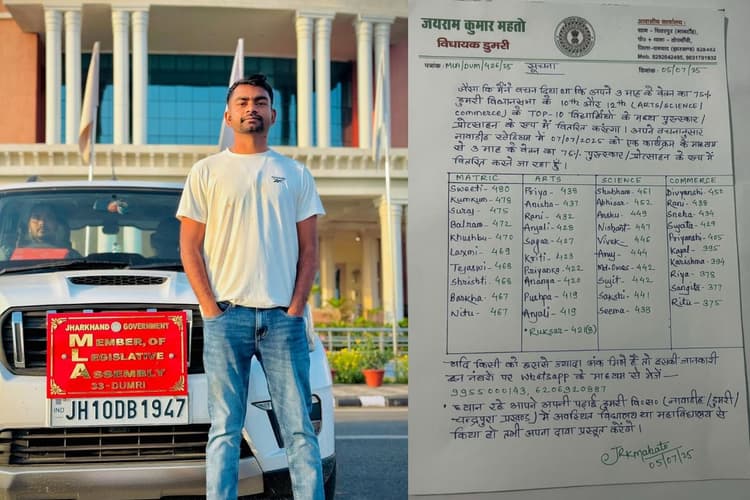 JHARKHAND GOVERNMENT
MEMBER, OF
LEGISLATIVE
ASSEMBLY
33-DUMRI
IND
JH10DB1947
Reebok
जयराम कुमार महतो
विधायक डुमरी
आवासीय कार्यालय :
ग्राम - चिरूडीह
जिला-धनबाद (झारखण्ड) 828402
पत्रांक MLA/DUM/426/25
सूचना
दिनांक : 05/07/25
जैसा कि मैंने वचन दिया था कि अपने 3 माह के वेतन का 75%
डुमरी विधानसभा के 10th और 12th (ARTS/SCIENCE/
commerce) के TOP-10 विद्यार्थियों के मध्य पुरुस्कार/
प्रोत्साहन के रूप में वितरित करूँगा। अपने वचनानुसार
नावाडीह स्टेडियम में 07/07/2025 को एक कार्यक्रम के माध्यम
से 3 माह के वेतन का 75% पुरुस्कार/प्रोत्साहन के रूप में
वितरित करने जा रहा हूँ।
MATRIC ARTS SCIENCE COMMERCE
Sweeti- 480 Priya - 438 Shubham- 461 Divyanshi- 450
Kumkum- 478 Anisha- 437 Abhinav - 452 Rani - 438
Suraj - 475 Rani - 432 Anshu - 449 Sneha - 434
Balram- 472 Anjali - 428 Nishant - 447 Sujata - 429
Khushbu- 470 Sagar - 427 Vivek - 446 Priyanshi- 405
Laxmi - 469 Kriti - 423 Anuj - 444 Kajal - 395
Tejaswi- 468 Priyanka- 422 Md. Owes - 442 Karishma - 394
Shristi - 468 Ananya - 420 Sujit - 442 Riya - 378
Barkha- 467 Pushpa - 419 Sakshi - 441 Sangita - 377
Nitu - 467 Anjali - 419 Seema - 438 Ritu - 375
• Ruksar - 421
यदि किसी को इससे ज्यादा अंक मिले हैं तो इसकी जानकारी
इन नंबरों पर Whatsapp के माध्यम से भेजें -
9955000143, 6206920887
• ध्यान रखें आपने अपनी पढ़ाई डुमरी वि०स० (नावाडीह/डुमरी/
चन्द्रपुरा प्रखण्ड) में अवस्थित विद्यालय या महाविद्यालय से
किया हो तभी अपना दावा प्रस्तुत करेंगे।
JRKmahato
05/07/25